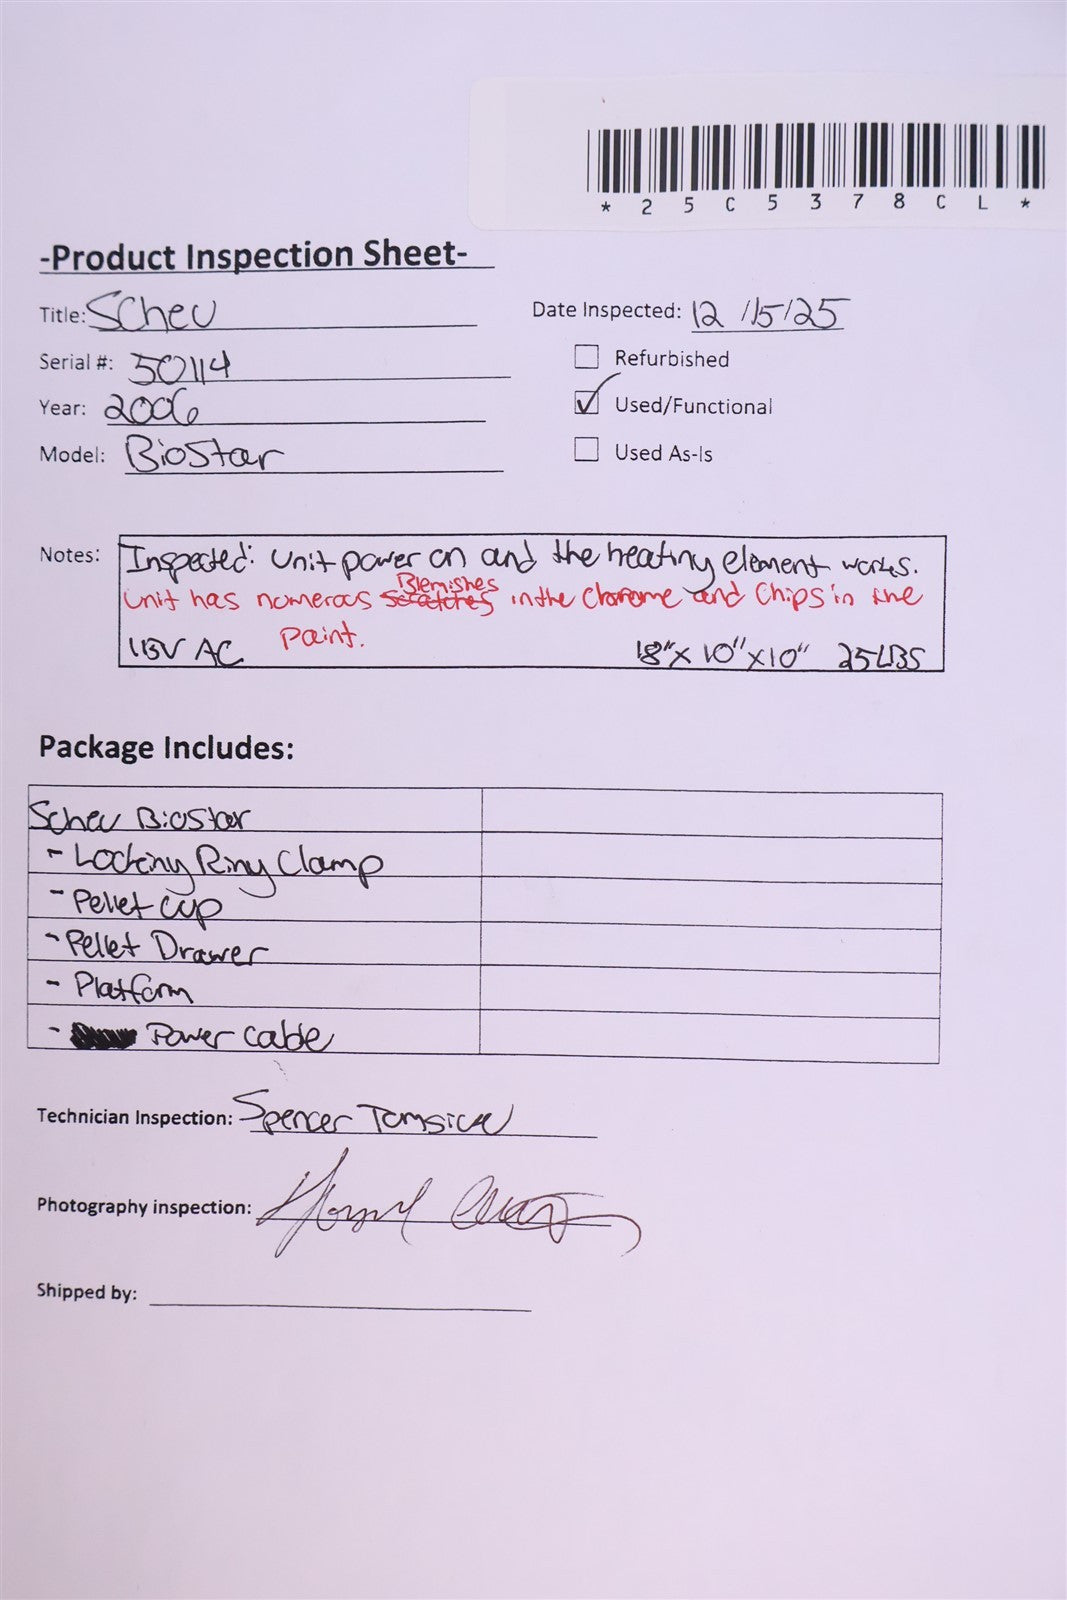 *25C5378CL*
-Product Inspection Sheet-
Title: Scheu
Date Inspected: 12/15/25
Serial #: 50114
Refurbished
Year: 2006
Used/Functional
Model: BioStar
Used As-Is
Notes: Inspected: Unit power on and the heating element works.
Blemishes
Unit has numerous scratches in the Chrome and Chips in the
Paint.
115V AC 18"x10"x10" 25LBS
Package Includes:
Scheu BioStar
- Locking Ring Clamp
- Pellet cup
- Pellet Drawer
- Platform
- Power cable
Technician Inspection: Spencer
Photography inspection:
Shipped by: